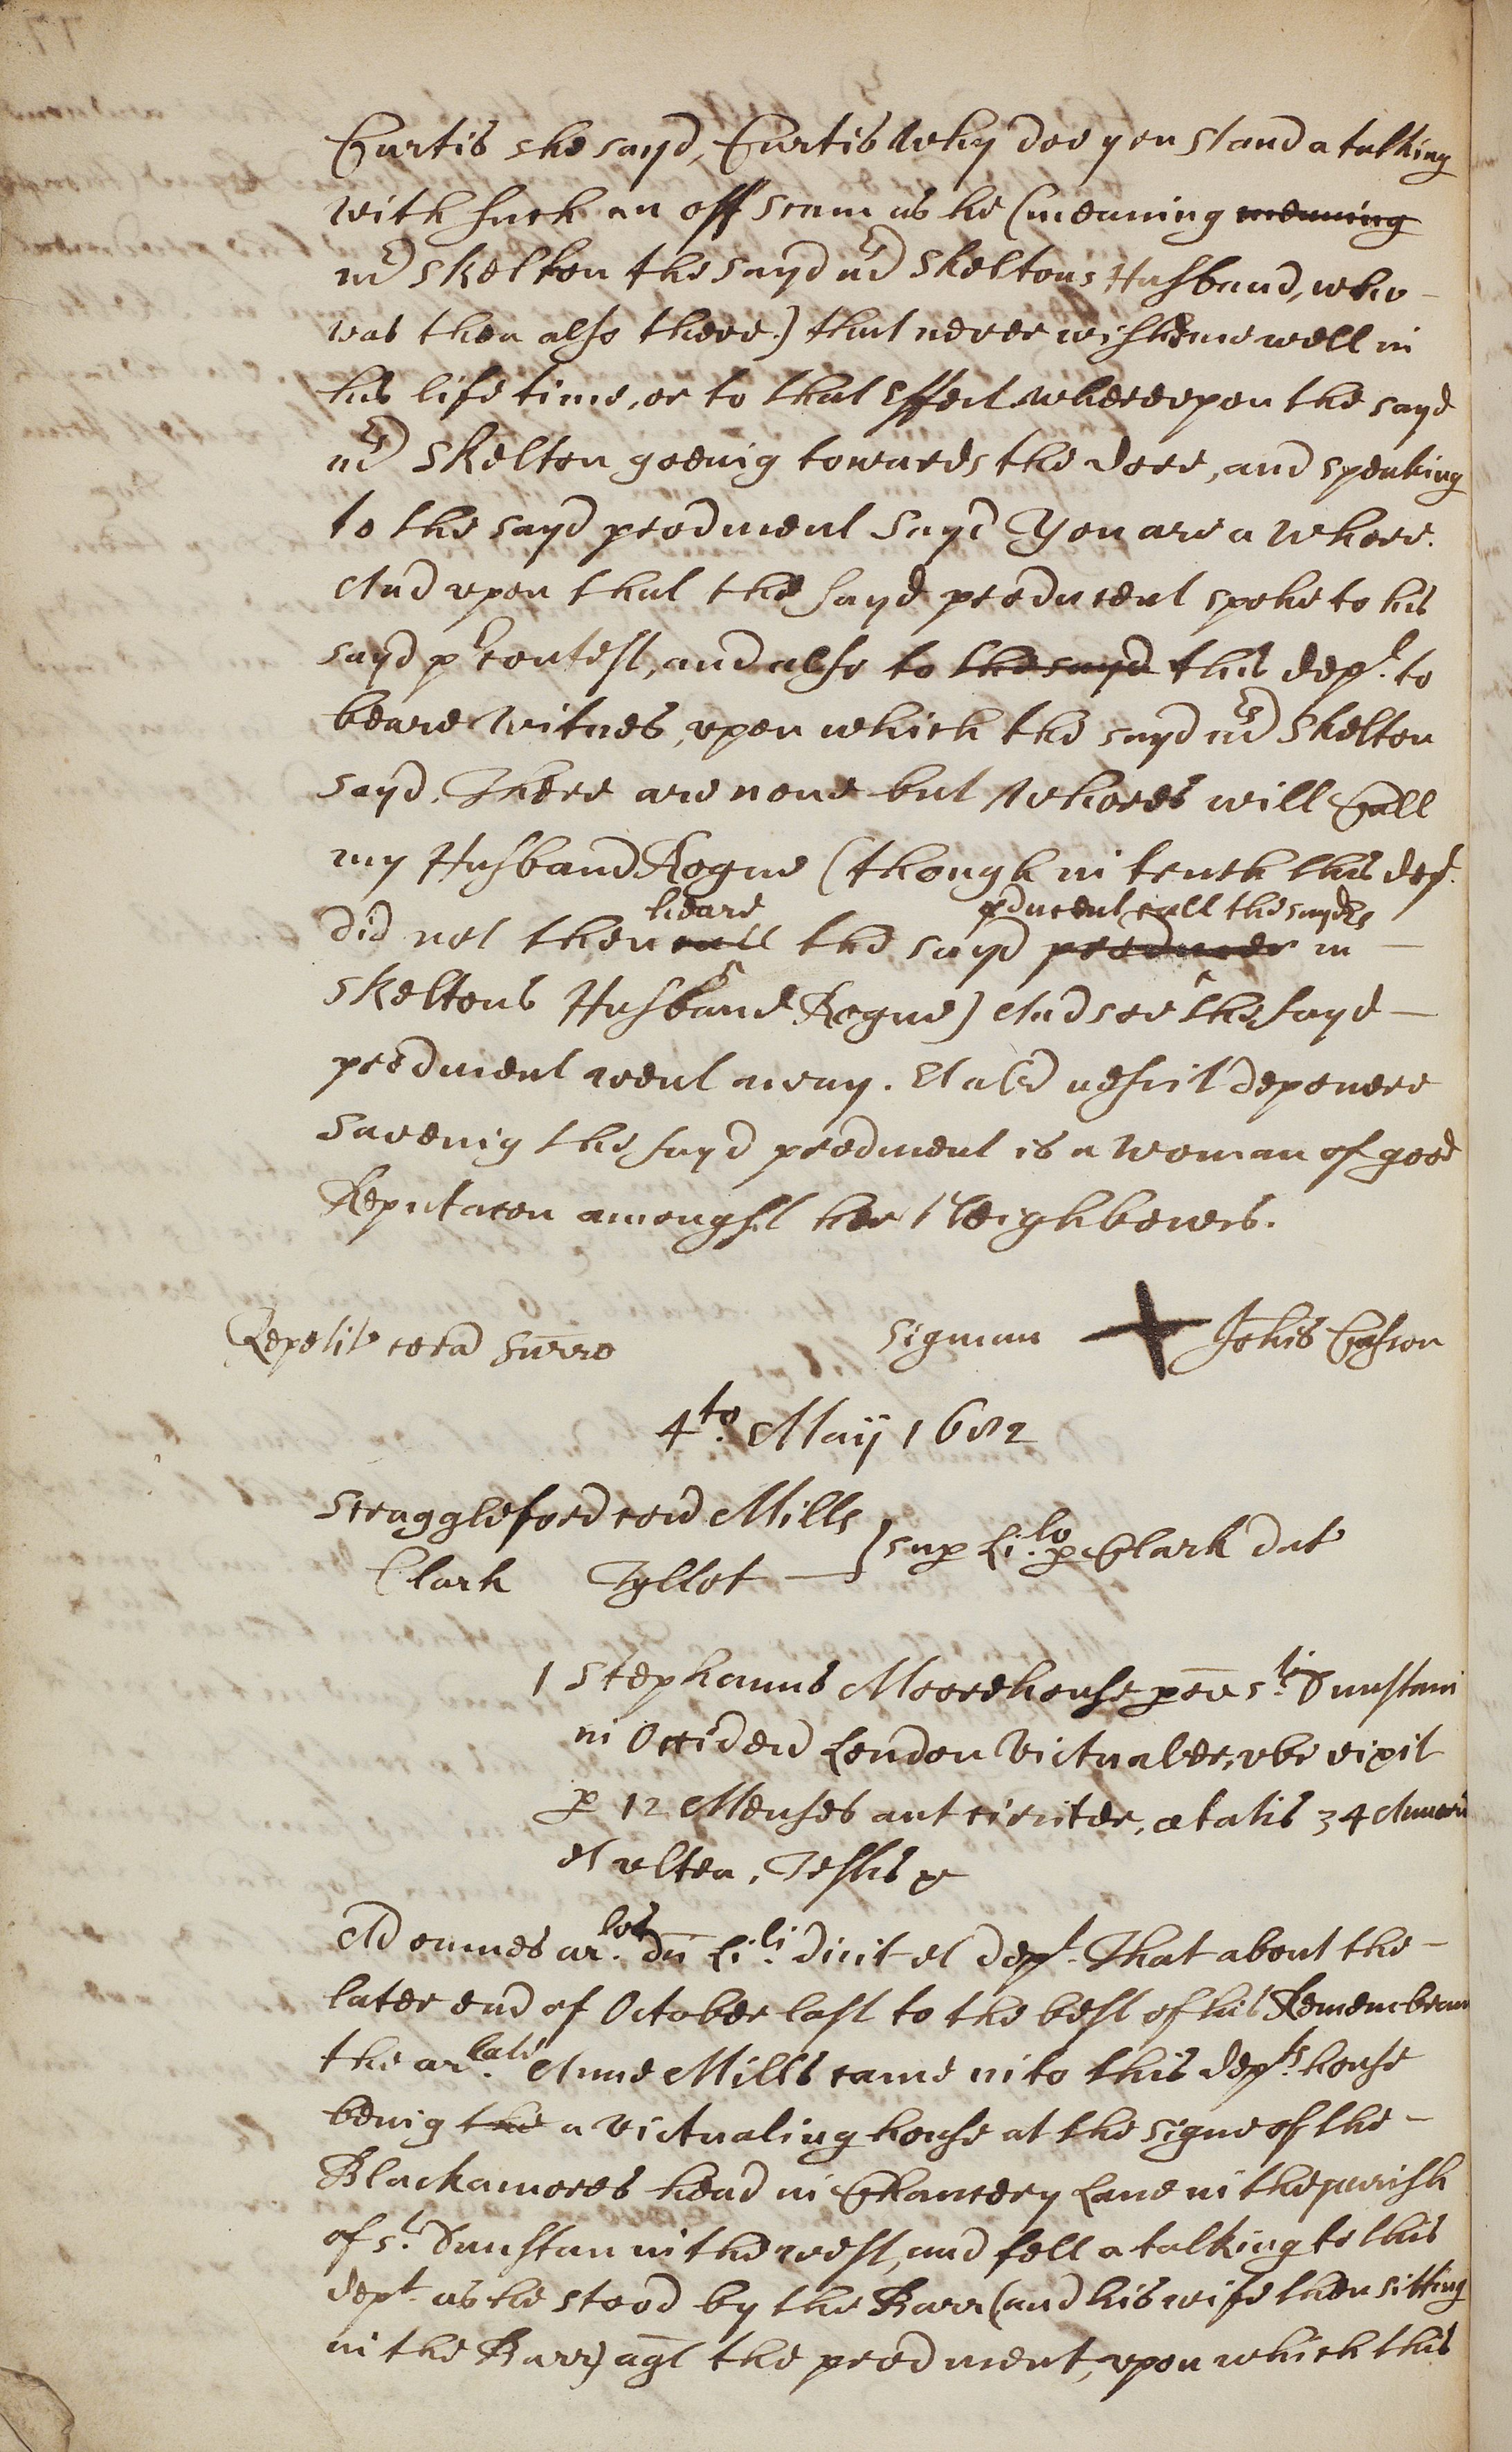 Curtis she sayd, Curtis why doe you stand a talking
with such an off scum as he (meaning meaning
mr Skelton the sayd mrs Skeltons Husband, who
was then also there) that never wisht me well in
his life time, or to that effect whereupon the sayd
mrs Skelton goeing towards the dore, and speaking
to the sayd producent sayd You are a whore.
And upon that the sayd producent spoke to his
sayd precontest, and also to the sayd this dept. to
beare witnes, upon which the sayd mrs Skelton
sayd, There are none but whores will Call
my Husband Rogue (though in truth this dept.
heare producent call the sayd mrs
did not then call the sayd producer in
Skeltons Husband Rogue) And soe the sayd
producent went away. Et alr nescit deponere
saveing the sayd producent is a woman of good
Reputacon amongst her Neighbours.
Repetit cora Surro signum + Johis Casson
4to. Maij 1682
Scraggleford con Mills
Clark Tyllot sup Li.lo p Clark dat
1 Stephanus Moorehouse poe sti Dunstani
in Occiden London Victualer, ubi vixit
p 12 Menses aut circiter, ætatis 34 Annoru
et ultra, Testis &
Ad omnes ar.los dti Li.li dicit et dept. That about the
later end of October last to the best of his Remembran
the ar.late Anne Mills came into this depts. house
being the a victualing house at the signe of the
Blackamores head in Chancery Lane in the parish
of St. Dunstan in the west, and fell a talking to this
dept. as he stood by the Barr (and his wife then sitting
in the Barr) agt the producent, upon which this